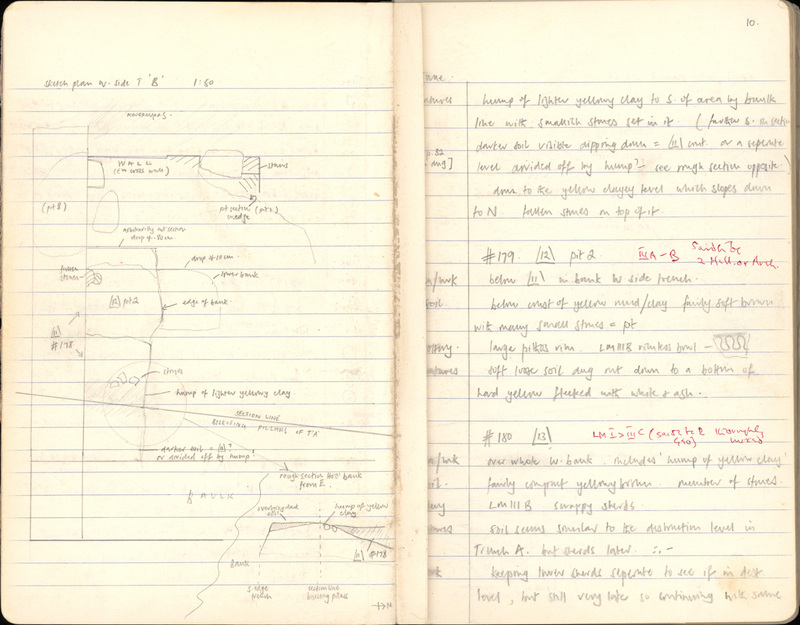 sketch plan w. side T 'B' 1:50
WALL
(E-W cross wall)
stones
(pt 8)
pt
wedge
arbitrarily cut section
drop of .50cm
drop of 10cm
lower bank
fallen
stones
[12] pit 2
edge of bank
[11]
#178
stones
hump of lighter yellowy clay
SECTION LINE
BISECTING PITHOS OF T'A'
darker soil = [11]?
or divided off by hump?
rough section thro' bank
from E.
BAULK
hump of yellow
clay
[11] #178
Bank
S edge
trench
section line
bisecting pithos
→N
10.
hump of lighter yellowy clay to S. of area by baulk
line with smallish stones set in it. (further S. in section
darker soil visible dipping down = [11] cont. or a seperate
level divided off by hump? - see rough section opposite)
down to the yellow clayey level which slopes down
to N fallen stones on top of it
#179 [12] pit 2 IIIA-B
below [11] in bank W side trench.
below crust of yellow mud/clay fairly soft brown
with many small stones = pit
large pithos rim. LMIIIB rimless bowl -
soft loose soil dug out down to a bottom of
hard yellow flecked with white & ash.
#180 [13] LM I > III C
over whole W. bank. includes 'hump of yellow clay'
fairly compact yellowy brown. number of stones.
LMIIIB scrappy sherds.
soil seems similar to the destruction level in
Trench A. but sherds later. ∴ -
keeping lower sherds seperate to see if in dest
level, but still very late so continuing with same